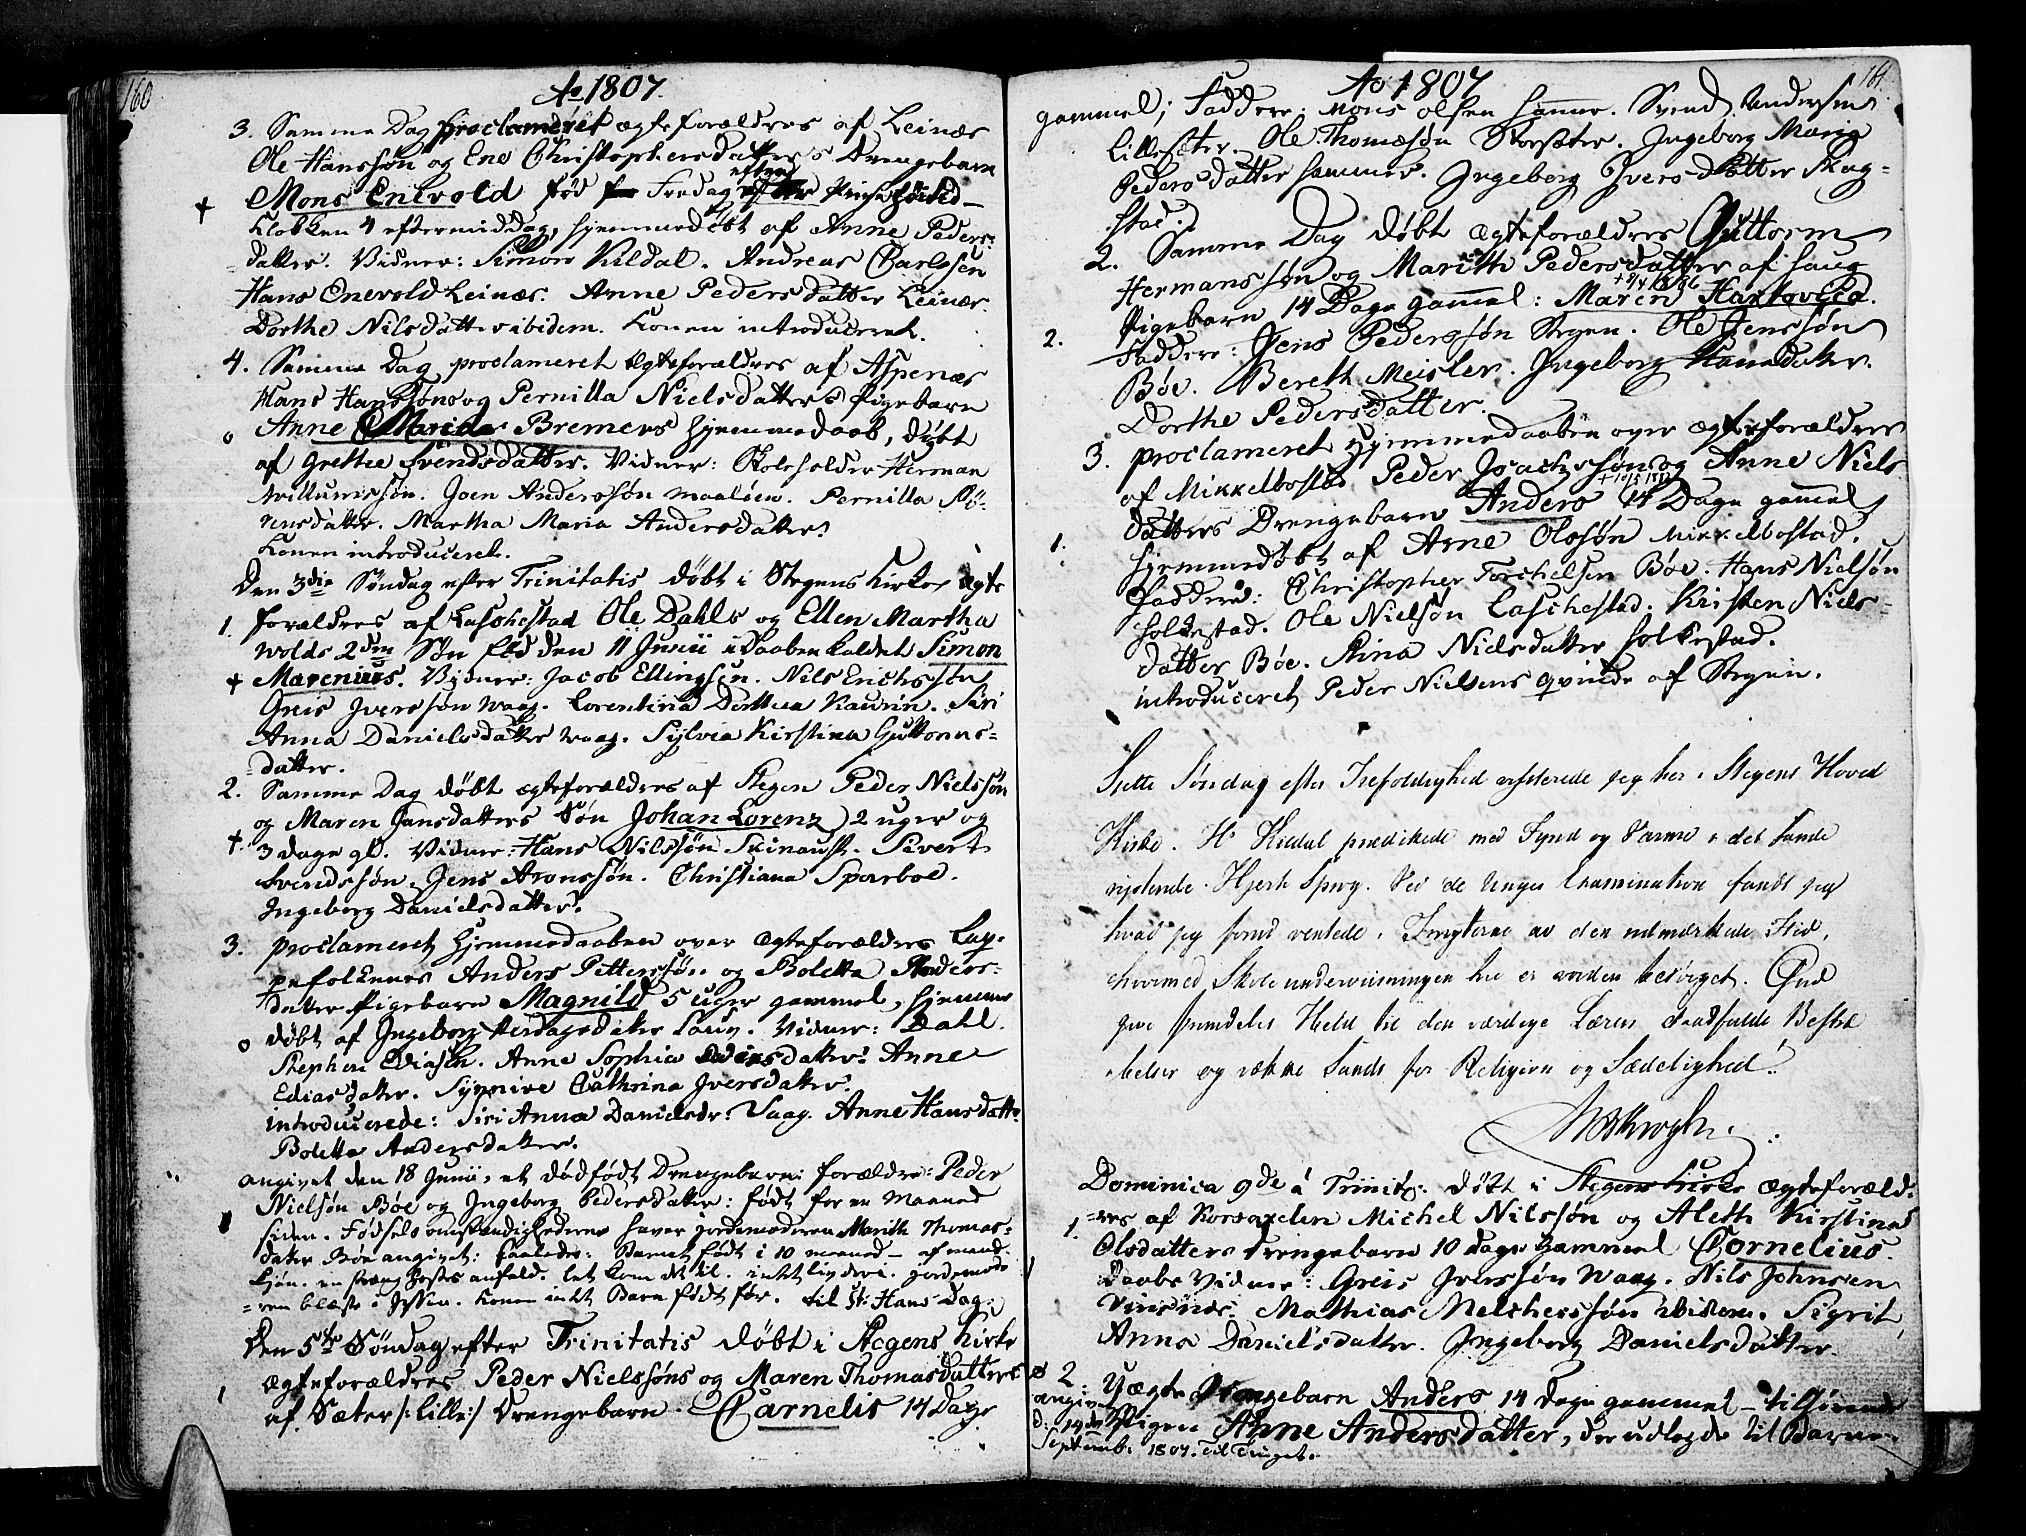 160
Ao 1807.
3. Samme Dag proclameret ægteforældres af Leinæs
Ole Hanssøn og Ene Christophersdatters Drengebarn
Mons Enevold fød Fredag
Klokken 4 eftermiddag, hjemmedøbt af Anne Peders-
datter. Vidner: Simon Kildal. Andreas Carlssen
Hans Enevold Leinæs. Anne Pedersdatter Leinæs.
Dorthe Nilsdatter ibidem. Konen introduceret.
4. Samme Dag proclameret ægteforældres af Aspenæs
Hans Hanssøns og Pernilla Nielsdatters Pigebarn
Anne Bremers hjemmedaab, døbt
af Grethe Svendsdatter. Vidner: Skoleholder Herman
Willumssøn. Joen Anderssøn Maaløen. Pernilla Sø-
rensdatter. Martha Maria Andersdatter.
Konen introduceret.
Den 3die Søndag efter Trinitatis døbt i Stegens Kirke ægte
1. forældres af Laschestad Ole Dahls og Ellen Martha
Wolds 2den Søn fød den 11 Junii i Daaben kaldet Simon
Marenius. Vidner: Jacob Ellingsen. Nils Erichssøn
Greis Iverssøn Waag. Lorentina Dorthea Kaurin. Siri
Anna Danielsdatter Waag. Sylvia Kirstina Guttorms-
datter.
2. Samme Dag døbt ægteforældres af Stegen Peder Nielssøn
og Maren Jansdatters Søn Johan Lorenz 2 uger og
3 dage gl. Vidner: Hans Nilssøn Skinaust. Sivert
Svendssøn. Jens Aronssøn. Christiana Sparboe.
Ingeborg Danielsdatter.
3. proclameret hjemmedaaben over ægteforældres Lap-
pefolkenes Anders Petterssøn og Boletta Anders-
datter Pigebarn Magnild 5 uger gammel, hjemme
døbt af Ingeborg Laug. Vidner: Dahl.
Stephen Ediasen. Anne Sophia Anne
Ediasdatter. Synnive Cathrina Iversdatter.
introducerede: Siri Anna Danielsdr Vaag. Anne Hansdatter
Boletta Andersdatter.
angivet den 18 Junii, et dødfødt Drengebarn: forældre: Peder
Nielsøn Bøe og Ingeborg Pedersdatter: født for en Maaned
siden. Fødsels omstændighederne haver jordemoderen Marith Thomas-
datter Bøe angivet: saaledes: Barnet født i 10 maaned — af mand-
kjøn. en anfald. let kom det til. intet liv deri. jordemode
-ren blæste i Konen intet Barn født før. til St: Hans Dag.
Den 5te Søndag efter Trinitatis døbt i Stegens Kirke
1 ægteforældres Peder Nielssøns og Maren Thomasdatters
af Sæter /: lille :/ Drengebarn. Carnelis 14 Dage
161
Ao 1807
gammel; Faddere: Mons Olsen Hammer. Svend Andersen
Lillesæter. Ole Thomesøn Storsæter. Ingeborg Maria
Pedersdatter Hammer. Ingeborg Iversdatter Skag-
stad.
2. Samme Dag døbt ægteforældres Guttorm
Hermanssøn og Marith Pedersdatter af Haug
Pigebarn 14 Dage gammel: Maren Hartvicka.
2. Faddere: Jens Pederssøn Stegen. Ole Jenssøn
Bøe. Bereth Meisler. Ingeborg Hansdatter.
Dorthe Pedersdatter.
3. proclameret hjemmedaaben over ægteforældres
af Mikkelbostad Peder Joachssøn og Anne Niels
datters Drengebarn Anders 14 Dage gammel
1. hjemmedøbt af Arne Olssøn Mikkelbostad.
Faddere: Christopher Torchelsen Bøe. Hans Nielsøn
Holkestad. Ole Nielsøn Laschestad. Kristen Niels-
datter Bøe. Stina Nielsdatter Holkestad.
introduceret Peder Nielsens qvinde af Stegen.
Sjette Søndag efter Trefoldighed visiterede jeg her i Stegens Hoved
Kirke. Hr Kildal prædikede med Fynd og Varme i det sande
rystende Hjerte Sprog. Ved de Unges Examination fandt jeg
hvad jeg forud ventede, Frugterne av den udmærkede Flid,
hvormed Skoleunderviisningen her er vorden besørget. Gud
give fremdeles Held til den værdige Lærers Bestræ
belser og vække Sands for Religion og Sædelighed!
MBKrogh.
Dominica 9de à Trinit: døbt i Stegens Kirke ægteforæld-
1. -res af Korsvælen Michel Nilssøn og Aleth Kirstina
Olsdatters Drengebarn 10 dage gammel Cornelius.
Daabs Vidner: Greis Iverssøn Waag. Nils Johnsen
Vinsnæs. Mathias Melcherssøn ibidem. Sigrit
Anna Danielsdatter. Ingeborg Danielsdatter.
2. Uægte Drengebarn Anders 14 dage gammel — tilhørende
angivet Pigen Anne Andersdatter, der udlagde til Barne-
d: 14de Septemb: 1807. til Tinget.